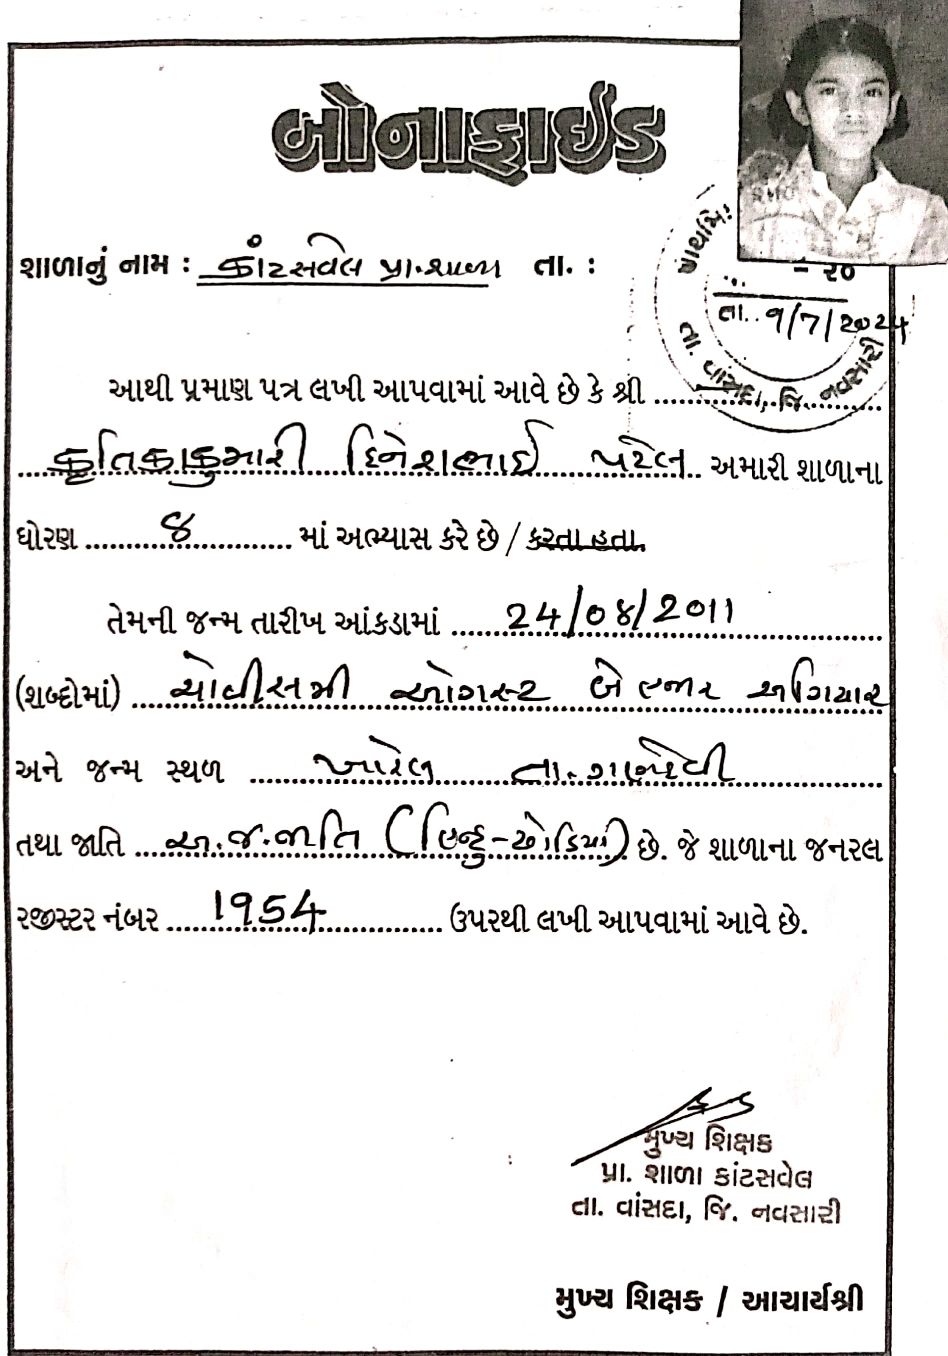 બોનાફાઈડ
શાળાનું નામ : કાંટસવેલ પ્રા.શાળા તા. :
પ્રાથમિ
- ૨૦
તા.. ૧/7/૨૦૨૪
તા. વાંસદા, જિ. નવસારી
આથી પ્રમાણ પત્ર લખી આપવામાં આવે છે કે શ્રી
કૃતિકાકુમારી દિનેશભાઈ પટેલ અમારી શાળાના
ધોરણ ૪ માં અભ્યાસ કરે છે / કરતા હતા.
તેમની જન્મ તારીખ આંકડામાં 24/08/2011
(શબ્દોમાં) ચોવીસમી ઓગસ્ટ બે હજાર અગિયાર
અને જન્મ સ્થળ ખારેલ તા.ગણદેવી
તથા જાતિ અ.જ.જાતિ (હિન્દુ-ધોડિયા) છે. જે શાળાના જનરલ
રજીસ્ટર નંબર 1954 ઉપરથી લખી આપવામાં આવે છે.
મુખ્ય શિક્ષક
પ્રા. શાળા કાંટસવેલ
તા. વાંસદા, જિ. નવસારી
મુખ્ય શિક્ષક / આચાર્યશ્રી